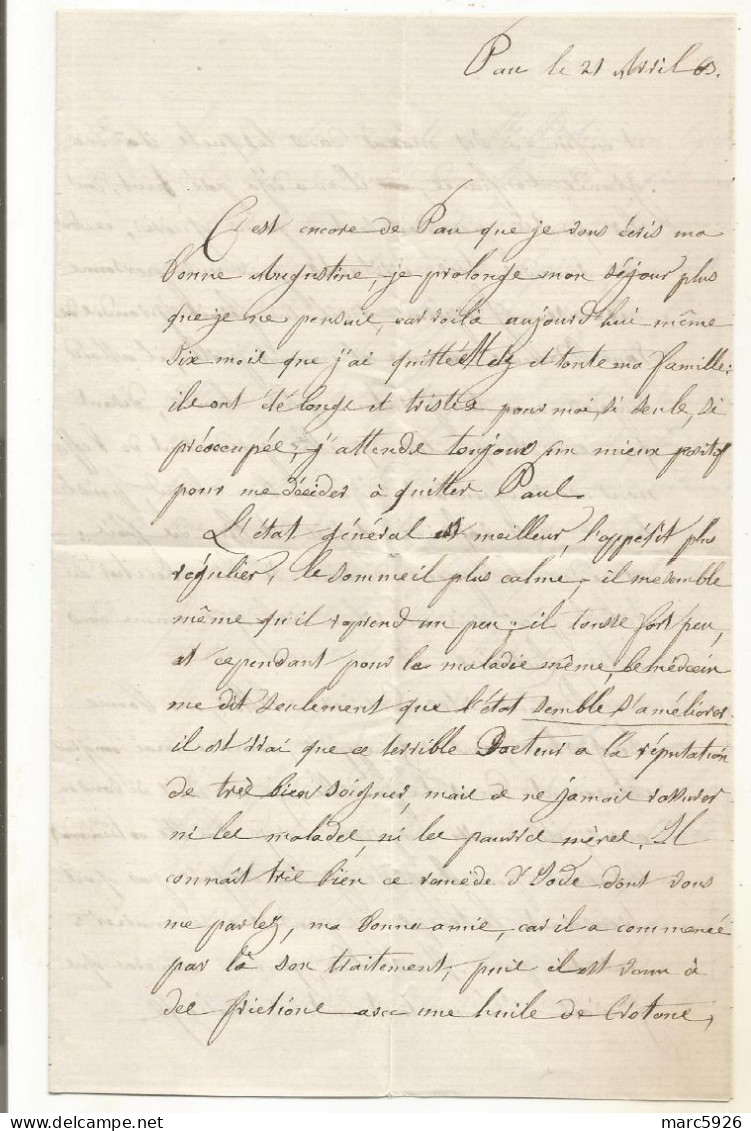 Pau le 21 Avril 63.
C'est encore de Pau que je vous écris ma
bonne Augustine, je prolonge mon séjour plus
que je ne pensais, car voilà aujourd'hui même
six mois que j'ai quitté Metz et toute ma famille;
ils ont été longs et tristes pour moi, si seule, si
préoccupée, j'attends toujours un mieux positif
pour me décider à quitter Paul.
L'état général est meilleur, l'appétit plus
régulier, le sommeil plus calme, il me semble
même qu'il reprend un peu; il tousse fort peu,
et cependant pour la maladie même, le médecin
me dit seulement que l'état semble s'améliorer.
il est vrai que ce terrible Docteur a la réputation
de très bien soigner, mais de ne jamais rassurer
ni les malades, ni les pauvres mères. Il
connaît très bien ce remède d'Iode dont vous
me parlez, ma bonne amie, car il a commencé
par là son traitement, puis il est venu à
des frictions avec une huile de Crotone,
marc5926